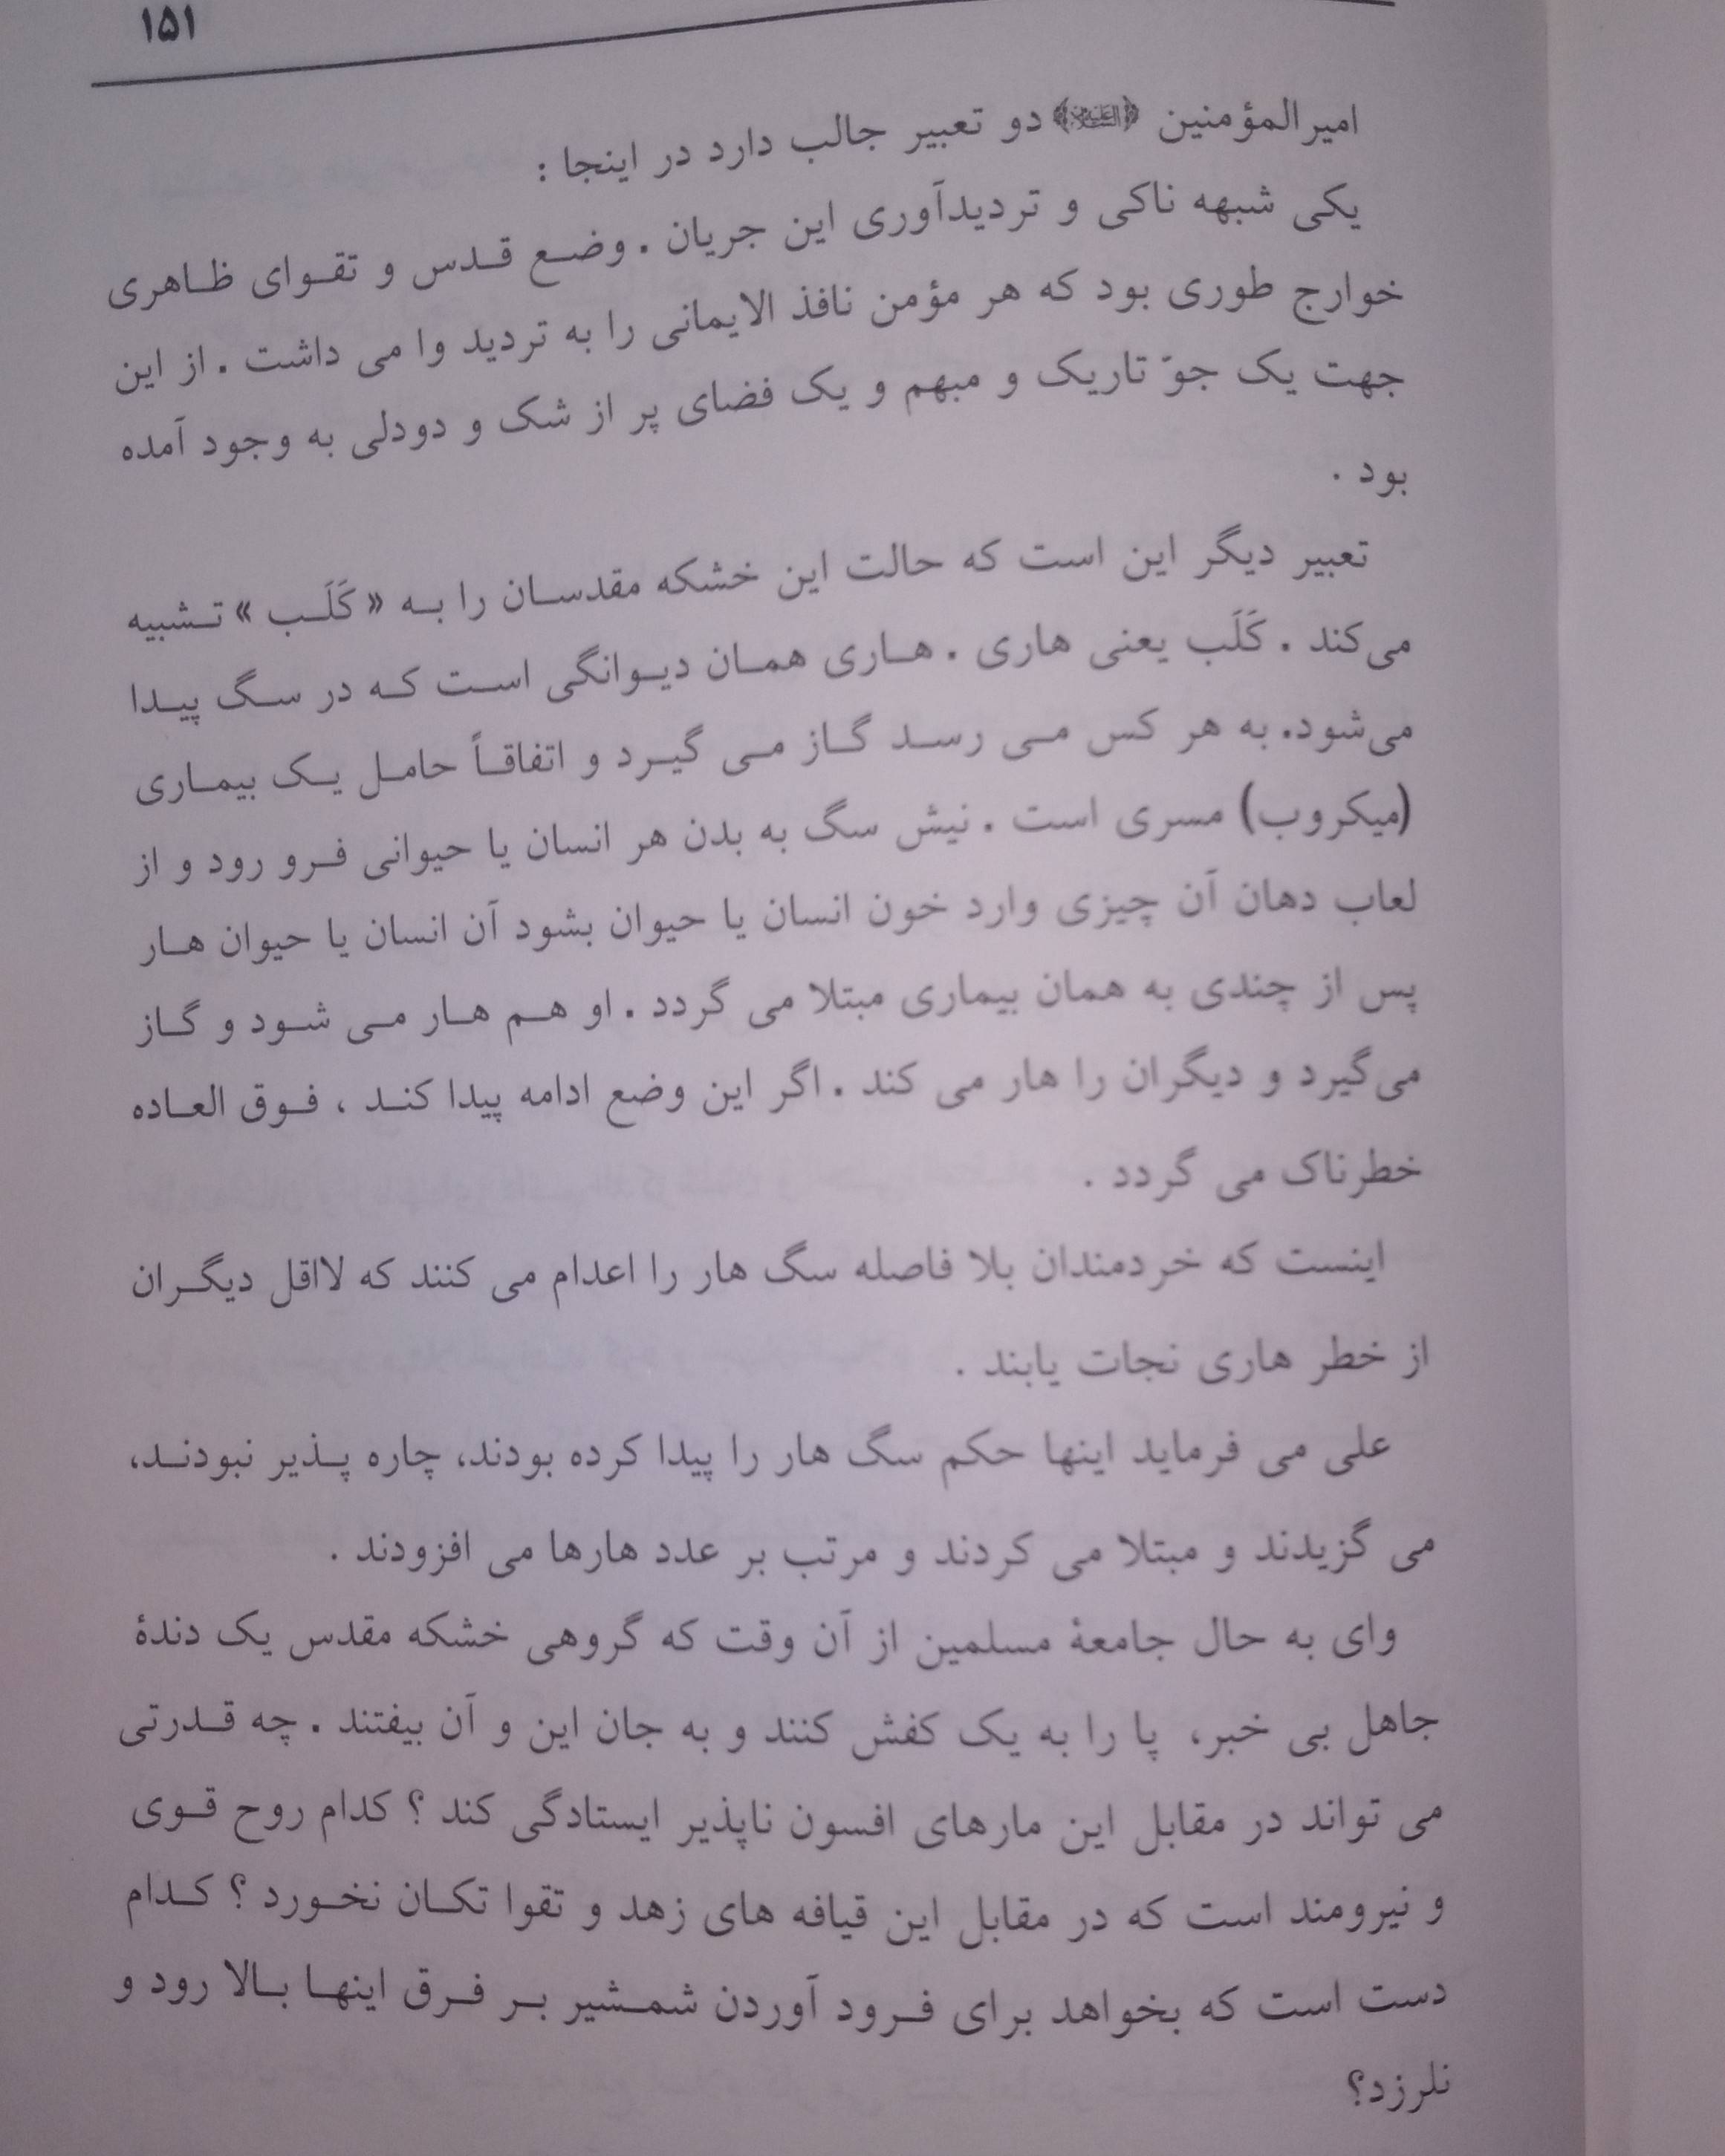 ۱۵۱
امیرالمؤمنین ﴿علیه السلام﴾ دو تعبیر جالب دارد در اینجا :
یکی شبهه ناکی و تردیدآوری این جریان . وضـع قـدس و تقـوای ظـاهری
خوارج طوری بود که هر مؤمن نافذ الایمانی را به تردید وا می داشت . از این
جهت یک جوّ تاریک و مبهم و یک فضای پر از شک و دودلی به وجود آمده
بود .
تعبیر دیگر این است که حالت این خشکه مقدسـان را بـه « کَلَـب » تـشبیه
می‌کند . کَلَب یعنی هاری . هـاری همـان دیـوانگی اسـت کـه در سـگ پیـدا
می‌شود. به هر کس مـی رسـد گـاز مـی گیـرد و اتفاقـاً حامـل یـک بیمـاری
(میکروب) مسری است . نیش سگ به بدن هر انسان یا حیوانی فـرو رود و از
لعاب دهان آن چیزی وارد خون انسان یا حیوان بشود آن انسان یا حیوان هـار
پس از چندی به همان بیماری مبتلا می گردد . او هـم هـار مـی شـود و گـاز
می‌گیرد و دیگران را هار می کند . اگر این وضع ادامه پیدا کنـد ، فـوق العـاده
خطرناک می گردد .
اینست که خردمندان بلا فاصله سگ هار را اعدام می کنند که لااقل دیگـران
از خطر هاری نجات یابند .
علی می فرماید اینها حکم سگ هار را پیدا کرده بودند، چاره پـذیر نبودنـد،
می گزیدند و مبتلا می کردند و مرتب بر عدد هارها می افزودند .
وای به حال جامعۀ مسلمین از آن وقت که گروهی خشکه مقدس یک دندۀ
جاهل بی خبر، پا را به یک کفش کنند و به جان این و آن بیفتند . چه قـدرتی
می تواند در مقابل این مارهای افسون ناپذیر ایستادگی کند ؟ کدام روح قـوی
و نیرومند است که در مقابل این قیافه های زهد و تقوا تکـان نخـورد ؟ کـدام
دست است که بخواهد برای فـرود آوردن شمـشیر بـر فـرق اینهـا بـالا رود و
نلرزد؟